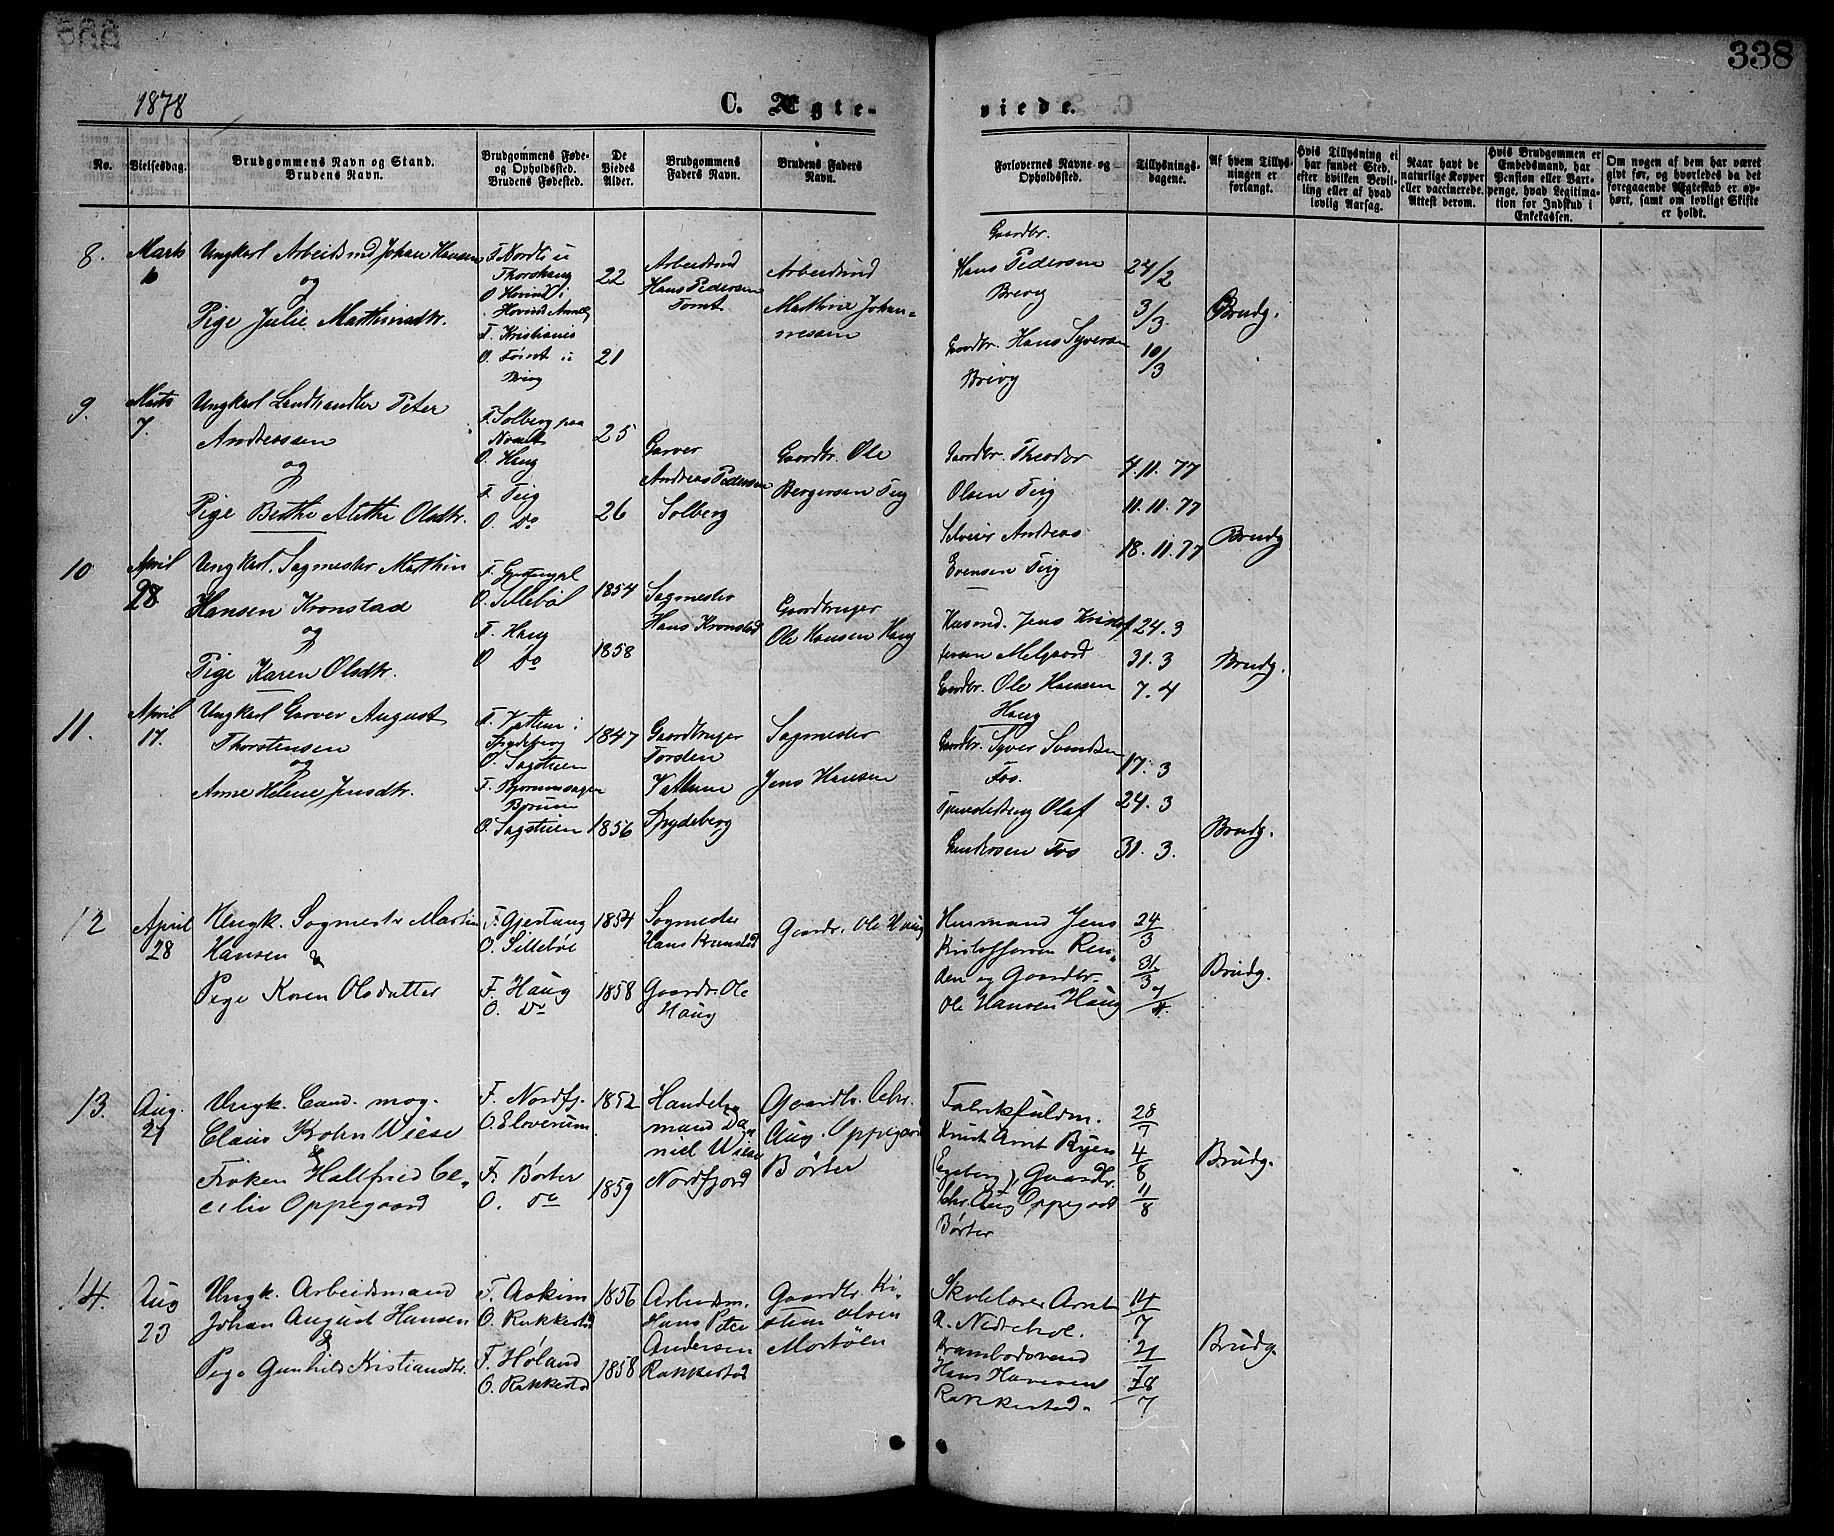 338
1878
C. Ægte-
viede.
No.
Vielsesdag.
Brudgommens Navn og Stand.
Brudens Navn.
Brudgommens Føde-
og Opholdssted.
Brudens Fødested.
De
Viedes
Alder.
Brudgommens
Faders Navn.
Brudens Faders
Navn.
Forlovernes Navne og
Opholdssted.
Tillysnings-
dagene.
Af hvem Tillys-
ningen er
forlangt.
Hvis Tillysning ei
har fundet Sted,
efter hvilken Bevil-
ling eller af hvad
lovlig Aarsag.
Naar havt de
naturlige Kopper
eller vaccinerede.
Attest derom.
Hvis Brudgommen er
Embedsmand, har
Pension eller Vart-
penge, hvad Legitima-
tion for Indskud i
Enkekassen.
Om nogen af dem har været
gift før, og hvorledes da det
foregaaende Ægteskab er op-
hørt, samt om lovligt Skifte
er holdt.
8.
Marts
6
Ungkarl Arbeidsmd Johan Hansen
og
Pige Julie Marthinsdtr.
F. Nordli i
O.
F. Kristiania
O. Tomt i
Brevg
22
21
Arbeidsmd
Hans Pedersen
Tomt
Arbeidsmd
Johan-
nessen
Gaardbr.
Hans Pedersen
Brevg
Gaardbr. Hans Syversen
Brevg
24/2
3/3
10/3
Brudg.
9.
Marts
7.
Ungkarl Landhandler Peter
Andreasen
og
Pige Berthe Alethe Olsdtr.
F. Solberg paa
O. Haug
F. Teig
O. Do
25
26
Garver
Andreas Pedersen
Solberg
Gaardbr. Ole
Bergersen Teig
Gaardbr. Theodor
Olsen Teig
Selveier Andreas
Evensen Teig
4.11.77
11.11.77
18.11.77
Brudg
10
April
28
Ungkarl. Sagmester Marthin
Hansen Kronstad
og
Pige Karen Olsdtr.
F.
O. Sillebøl
F. Haug
O Do
1854
1858
Sagmester
Hans Kronstad
Gaardbruger
Ole Hansen Haug
Husmd. Jens Kristof
fersen Melgaard
Gaardbr. Ole Hansen
Haug
24.3
31.3
7.4
Brudg.
11.
April
17.
Ungkarl Garver August
Thorstensen
og
Anne Helene Jensdtr.
F. Vattum i
Spydeberg
O. Sagstuen
F.
O. Sagstuen
1847
1856
Gaardbruger
Torsten
Vattum
Spydeberg
Sagmester
Jens Hansen
Gaardbr. Syver Svendsen
Fos.
Olaf
Gundersen Fos
17.3
24.3
31.3.
Brudg.
12
April
28
Ungk. Sagmester Martin
Hansen &
Pige Karen Olsdatter
F. Gjestang
O. Sillebøl
F. Haug
O. Do
1854
1858
Sagmester
Hans Kronstad
Gaardbr. Ole
Haug
Gaardbr. Ole Haug
Husmand Jens
Kristoffersen Ren-
den og Gaardbr.
Ole Hansen Haug
24/3
31/3
7/4.
Brudg.
13.
Aug.
27
Ungk. Cand. mag.
Claus Krohn Wiese
&
Frøken Hallfried Ce-
cilie Oppegaard
F. Nordfj.
O. Elverum
F. Børter
O. do
1852
1859
Handels-
mand Da-
niel Wiese
Nordfjord
Gaardbr. Chr.
Aug. Oppegaard
Børter
Fabrikfuldm.
Knut Arnt Ryen
(Egeberg), Gaardbr.
Chr. Aug Oppegaard
Børter
28/7
4/8
11/8
Brudg.
14.
Aug
23
Ungk. Arbeidsmand
Johan August Hansen
&
Pige Gunhild Kristiansdtr.
F. Askim
O. Rakkestad
F. Høland
O. Rakkestad
1856
1858
Arbeidsm.
Hans Peter
Andersen
Rakkestad
Gaardbr. Kri-
stian Olsen
Mortølen
Skolelærer Arnt
A. Nedrebøl.
Hans
Rakkestad.
14/7
21/7
28/7
Brudg.